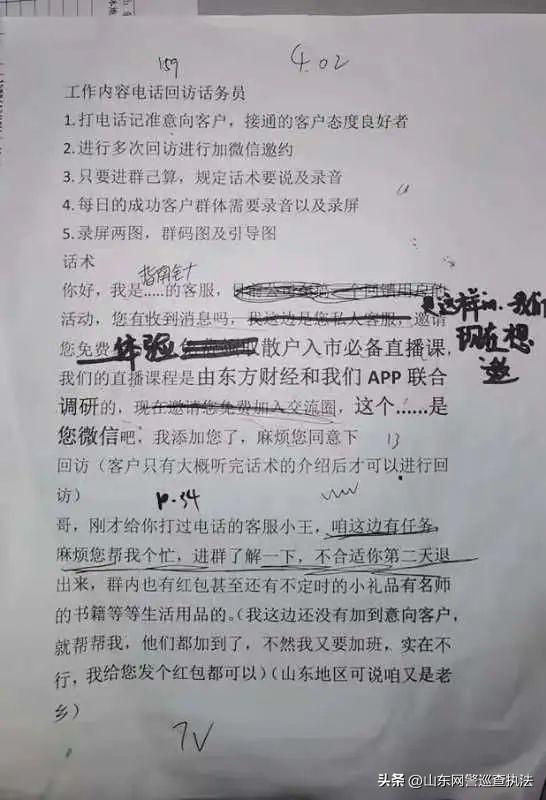 159
4.02
工作内容电话回访话务员
1.打电话记准意向客户，接通的客户态度良好者
2.进行多次回访进行加微信邀约
3.只要进群己算，规定话术要说及录音
4.每日的成功客户群体需要录音以及录屏
5.录屏两图，群码图及引导图
话术
指南针
你好，我是……的客服，
活动，您有收到消息吗，我这边是您私人客服，邀请
是这样的，我们现在想邀
您免费体验散户入市必备直播课，
我们的直播课程是由东方财经和我们 APP 联合
调研的，现在邀请您免费加入交流圈，这个……是
您微信吧，我添加您了，麻烦您同意下
13
回访（客户只有大概听完话术的介绍后才可以进行回
访）
哥，刚才给你打过电话的客服小王，咱这边有任务，
麻烦您帮我个忙，进群了解一下，不合适你第二天退
出来，群内也有红包甚至还有不定时的小礼品有名师
的书籍等等生活用品的。（我这边还没有加到意向客户，
就帮帮我，他们都加到了，不然我又要加班，实在不
行，我给您发个红包都可以）（山东地区可说咱又是老
乡）
头条 @山东网警巡查执法